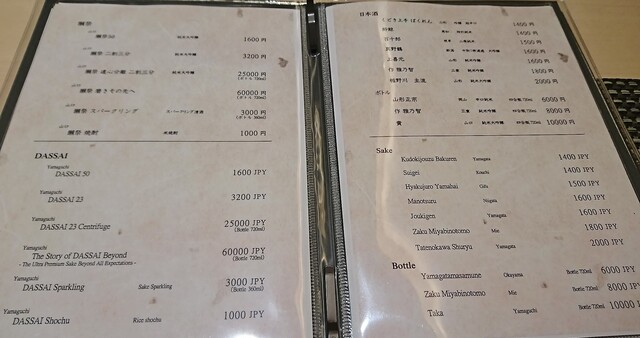 獺祭
獺祭50 純米大吟醸 1600 円
獺祭 二割三分 純米大吟醸 3200 円
獺祭 遠心分離 二割三分 純米大吟醸 25000 円
(ボトル 720ml)
獺祭 磨きその先へ 60000 円
(ボトル 720ml)
獺祭 スパークリング スパークリング清酒 3000 円
(ボトル 360ml)
獺祭 焼酎 米焼酎 1000 円
DASSAI
Yamaguchi
DASSAI 50 1600 JPY
Yamaguchi
DASSAI 23 3200 JPY
Yamaguchi
DASSAI 23 Centrifuge 25000 JPY
(Bottle 720ml)
Yamaguchi
The Story of DASSAI Beyond 60000 JPY
- The Ultra Premium Sake Beyond All Expectations - (Bottle 720ml)
Yamaguchi
DASSAI Sparkling Sake Sparkling 3000 JPY
(Bottle 360ml)
Yamaguchi
DASSAI Shochu Rice shochu 1000 JPY
日本酒
くどき上手 ばくれん 山形 吟醸 1400 円
酔鯨 高知 1400 円
百十郎 岐阜 1500 円
真野鶴 新潟 1600 円
上喜元 山形 純米大吟醸 1600 円
作 雅乃智 三重 純米大吟醸 1800 円
楯野川 主流 山形 純米大吟醸 2000 円
ボトル
山形正宗 岡山 四合瓶 720ml 6000 円
作 雅乃智 三重 純米大吟醸 四合瓶 720ml 8000 円
貴 山口 純米大吟醸 四合瓶 720ml 10000 円
Sake
Kudokijouzu Bakuren Yamagata 1400 JPY
Suigei Kouchi 1400 JPY
Hyakujuro Yamahai Gifu 1500 JPY
Manotsuru Niigata 1600 JPY
Joukigen Yamagata 1600 JPY
Zaku Miyabinotomo Mie 1800 JPY
Tatenokawa Shuryu Yamagata 2000 JPY
Bottle
Yamagatamasamune Okayama Bottle 720ml 6000 JPY
Zaku Miyabinotomo Mie Bottle 720ml 8000 JPY
Taka Yamaguchi Bottle 720ml 10000